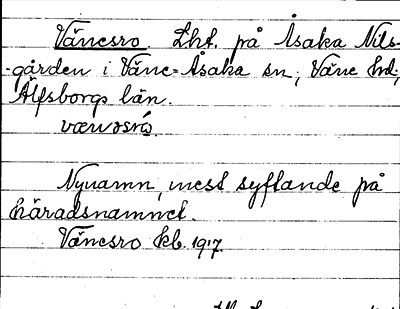 Vänesro Lht. på Åsaka Nils-
-gården i Väne-Åsaka sn, Väne hd,
Älfsborgs län.
Nynamn, mest syftande på
häradsnamnet.
Vänesro kb. 1917.